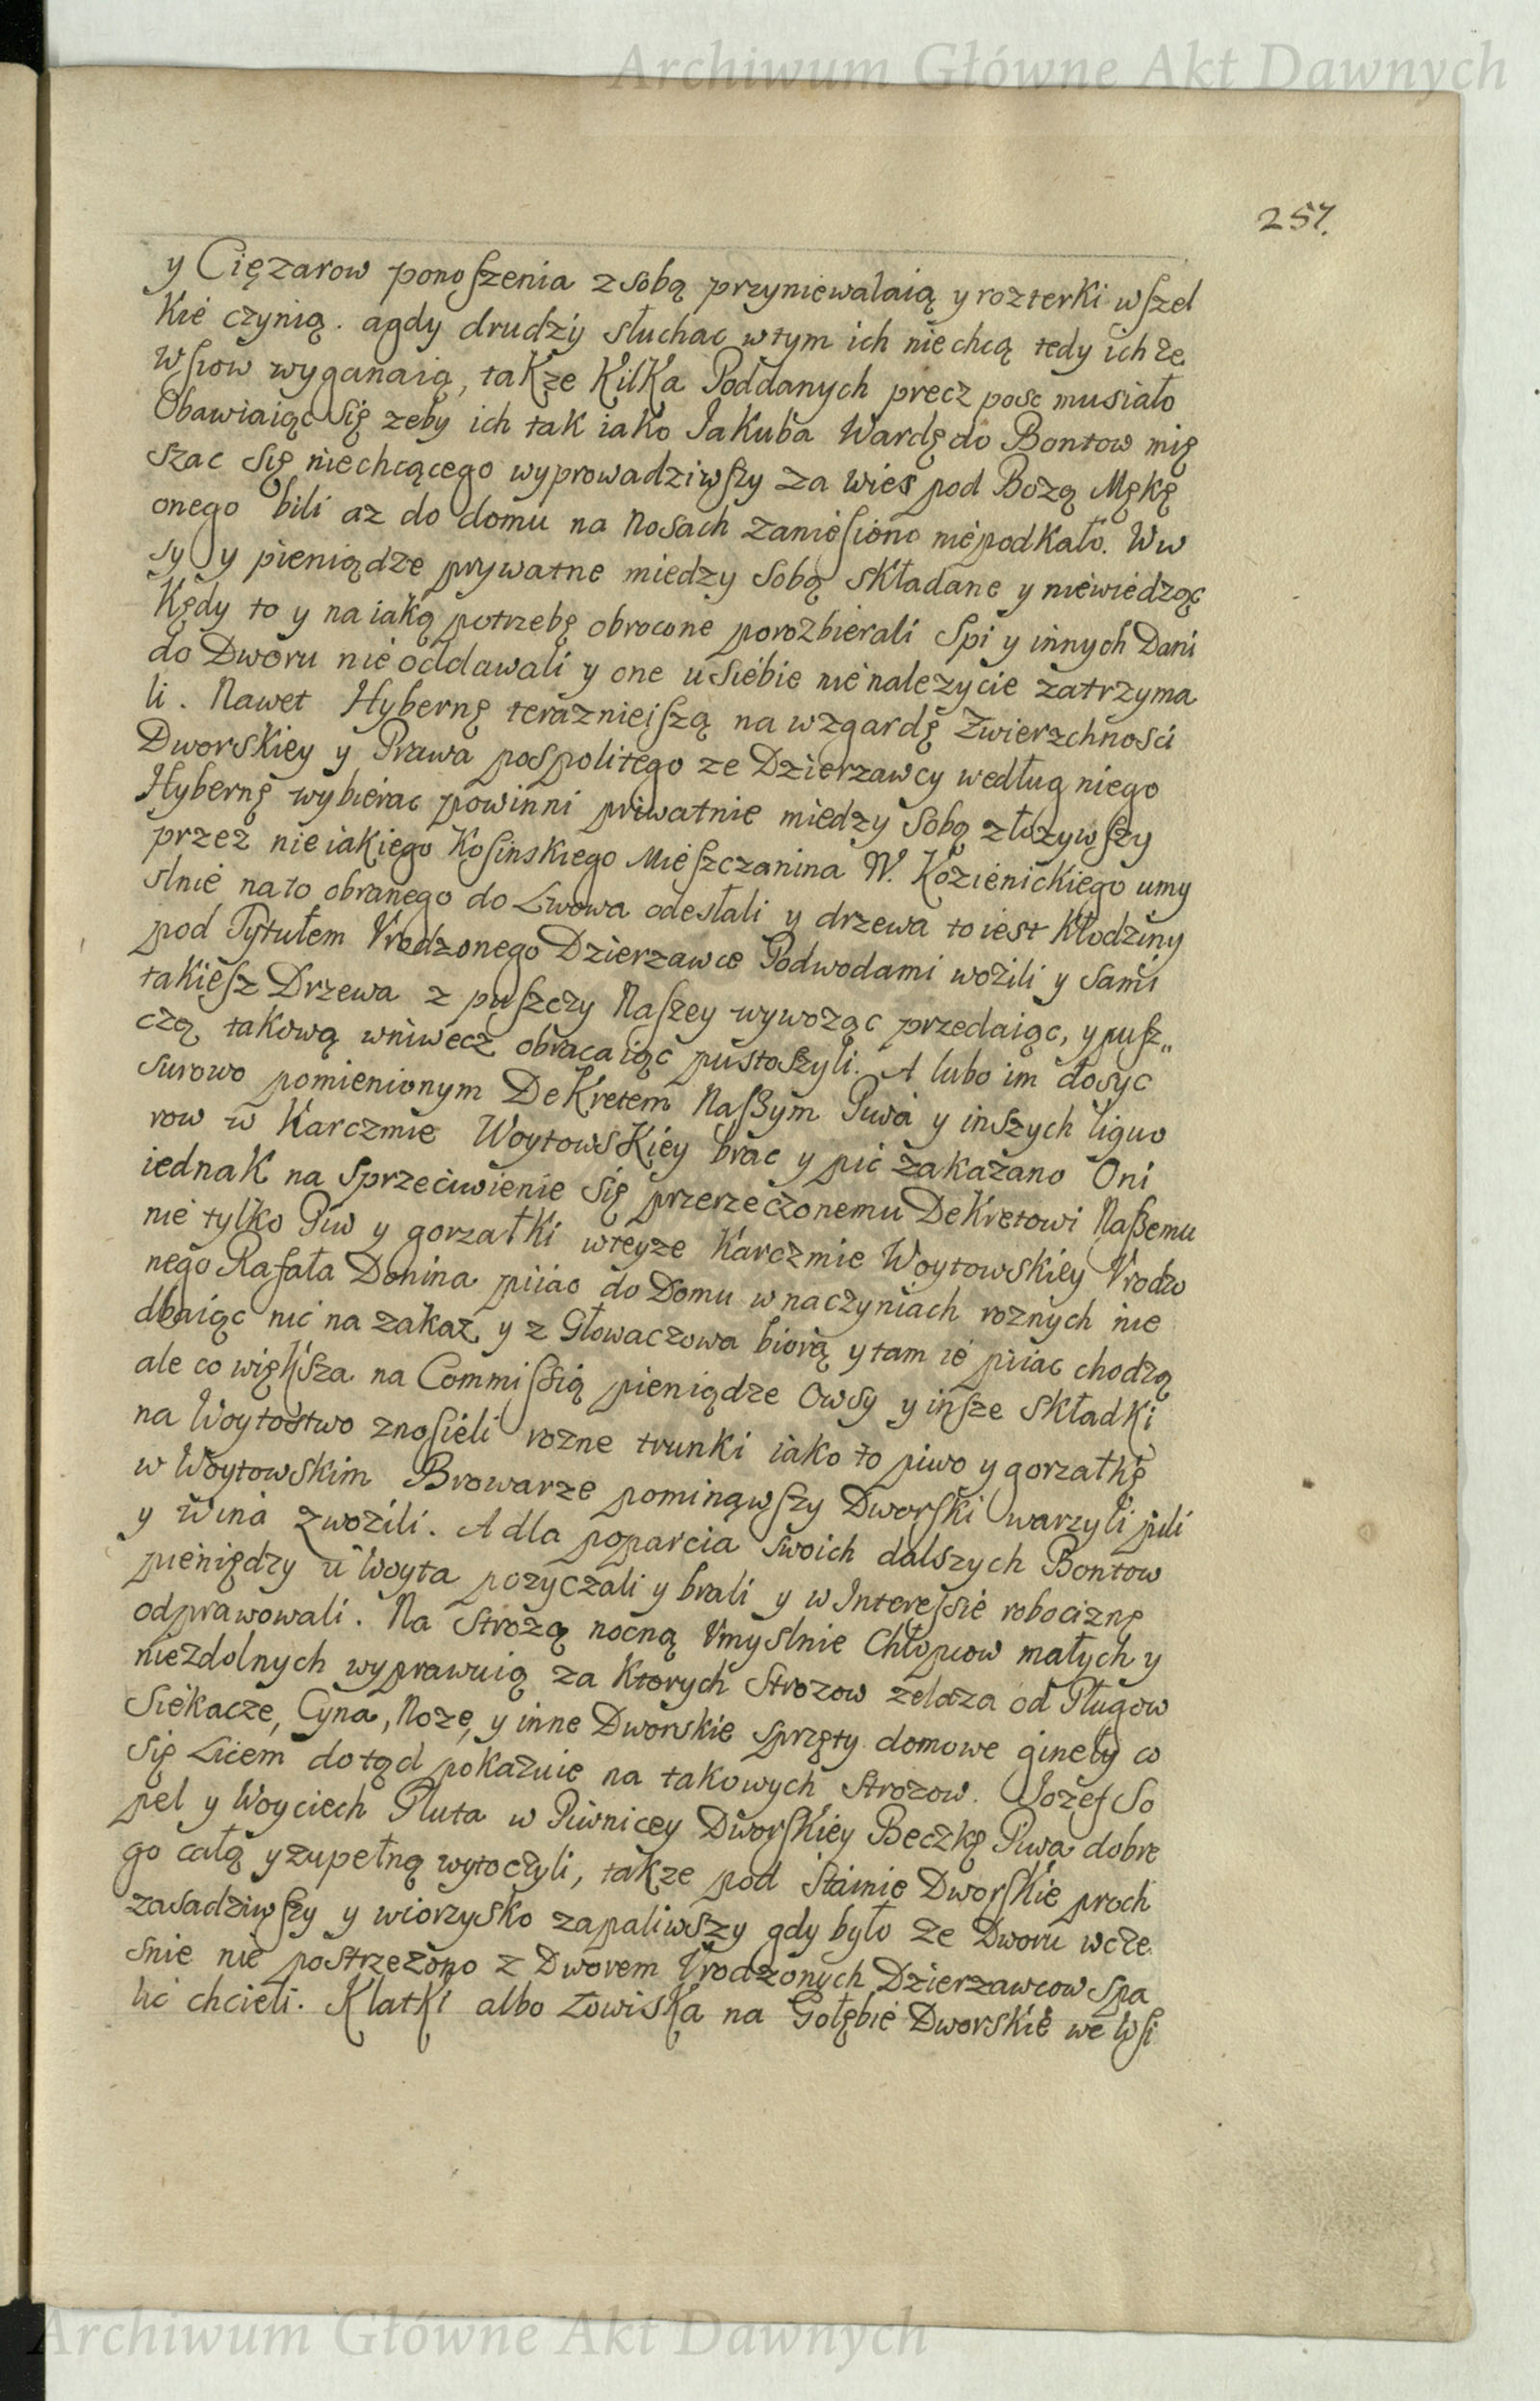 Archiwum Główne Akt Dawnych
257.
y Cięzarow ponoszenia z sobą przyniewalaią y rozterki wszel
kie czynią. a gdy drudzy słuchac w tym ich niechcą tedy ich ze
Wsiow wyganaią, takze Kilka Poddanych precz posc musiało
Obawiaiąc się zeby ich tak iako Jakuba Wardę do Bontow mię
szac się niechcącego wyprowadziwszy za wies pod Bozą Mękę
onego bili az do domu na Nosach zaniesiono niepodkało. Ww
sy y pieniądze prywatne miedzy sobą składane y niewiedząc
Kędy to y na iaką potrzebę obrocone porozbierali Spi y innych Dani
do Dworu nie oddawali y one u siebie nienalezycie zatrzyma
li. Nawet Hybernę terazniejszą na wzgardę Zwierzchnosci
Dworskiey y Prawa pospolitego ze Dzierzawcy według niego
Hybernę wybierac powinni priwatnie miedzy sobą złozywszy
przez nieiakiego Kosinskiego Mieszczanina N. Kozienickiego umy
slnie na to obranego do Lwowa odesłali y drzewa to iest Kłodziny
pod Tytułem Vrodzonego Dzierzawce Podwodami wozili y sami
takiesz Drzewa z puszczy Naszey wywoząc przedaiąc, y pusz„
czą takową wniwecz obracaiąc pustoszyli. A lubo im dosyc
surowo pomienionym Dekretem Naszym Piwa y inszych liquo
row w Karczmie Woytowskiey brac y pic zakazano Oni
iednak na sprzeciwienie się przerzeczonemu Dekretowi Naszemu
nie tylko Piw y gorzałki wteyze Karczmie Woytowskiey Vrodzo
nego Rafała Donina piiac do Domu w naczyniach roznych nie
dbaiąc nic na zakaz y z Głowaczowa biorą y tam ie piiac chodzą
ale co większa na Commissią pieniądze Owsy y insze składki
na Woytostwo znosieli rozne trunki iako to piwo y gorzałkę
w Woytowskim Browarze pominąwszy Dworski warzyli pili
y wina zwozili. A dla poparcia swoich dalszych Bontow
pieniędzy u Woyta pozyczali y brali y w Interessie robociznę
odprawowali. Na strozą nocną Vmyslnie Chłopcow małych y
niezdolnych wyprawuią za ktorych Strozow zelaza od Pługow
Siekacze, Cyna, Noze, y inne Dworskie sprzęty domowe gineły co
się Licem dotąd pokazuie na takowych strozow. Jozef So
pel y Woyciech Pluta w Piwnicey Dworskiey Beczkę Piwa dobre
go całą y zupełną wytoczyli, takze pod stainie Dworskie proch
zasadziwszy y wiorzysko zapaliwszy gdy było ze Dworu wcze
snie nie postrzezono z Dworem Vrodzonych Dzierzawcow spa
lic chcieli. Klatki albo Łowiska na Gołębie Dworskie we Wsi
Archiwum Główne Akt Dawnych